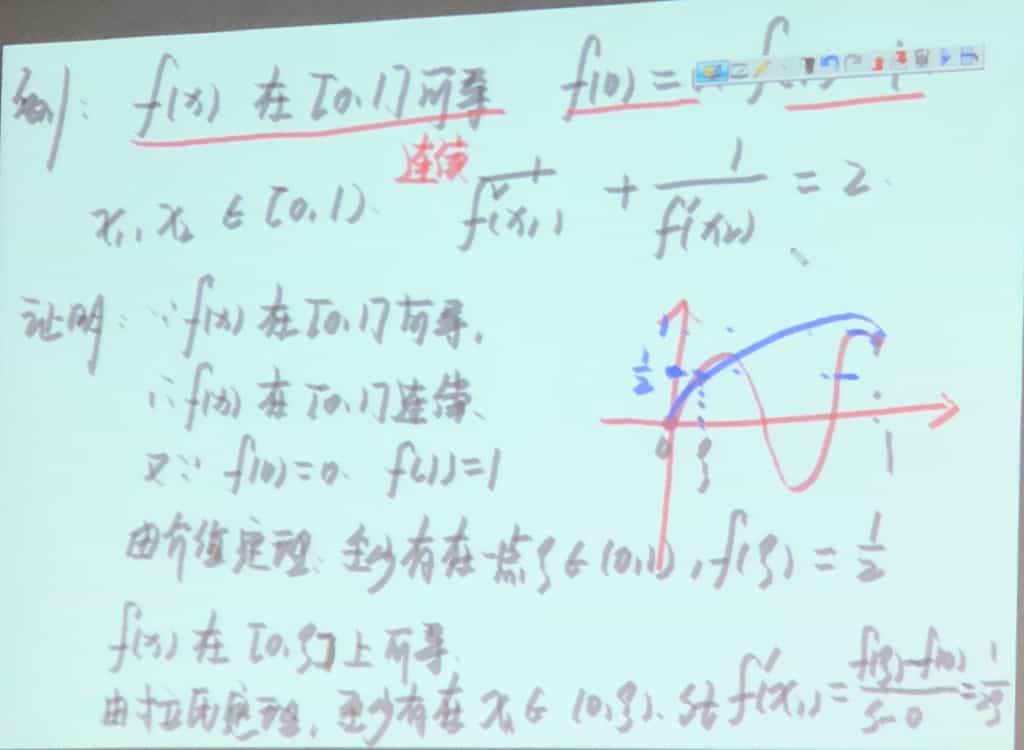 例: f(x) 在 [0,1] 可导 f(0) =
连续
x₁, x₂ ∈ [0,1) 1/f'(x₁) + 1/f'(x₂) = 2
证明: ∵ f(x) 在 [0,1] 可导,
∴ f(x) 在 [0,1] 连续
又∵ f(0)=0 f(1)=1
1/2
0 ξ 1
由介值定理: 至少存在一点 ξ ∈ (0,1), f(ξ) = 1/2
f(x) 在 [0,ξ] 上可导
由拉氏定理, 至少存在 x₁ ∈ (0,ξ). st f'(x₁) = (f(ξ)-f(0))/(ξ-0) = 1/2ξ